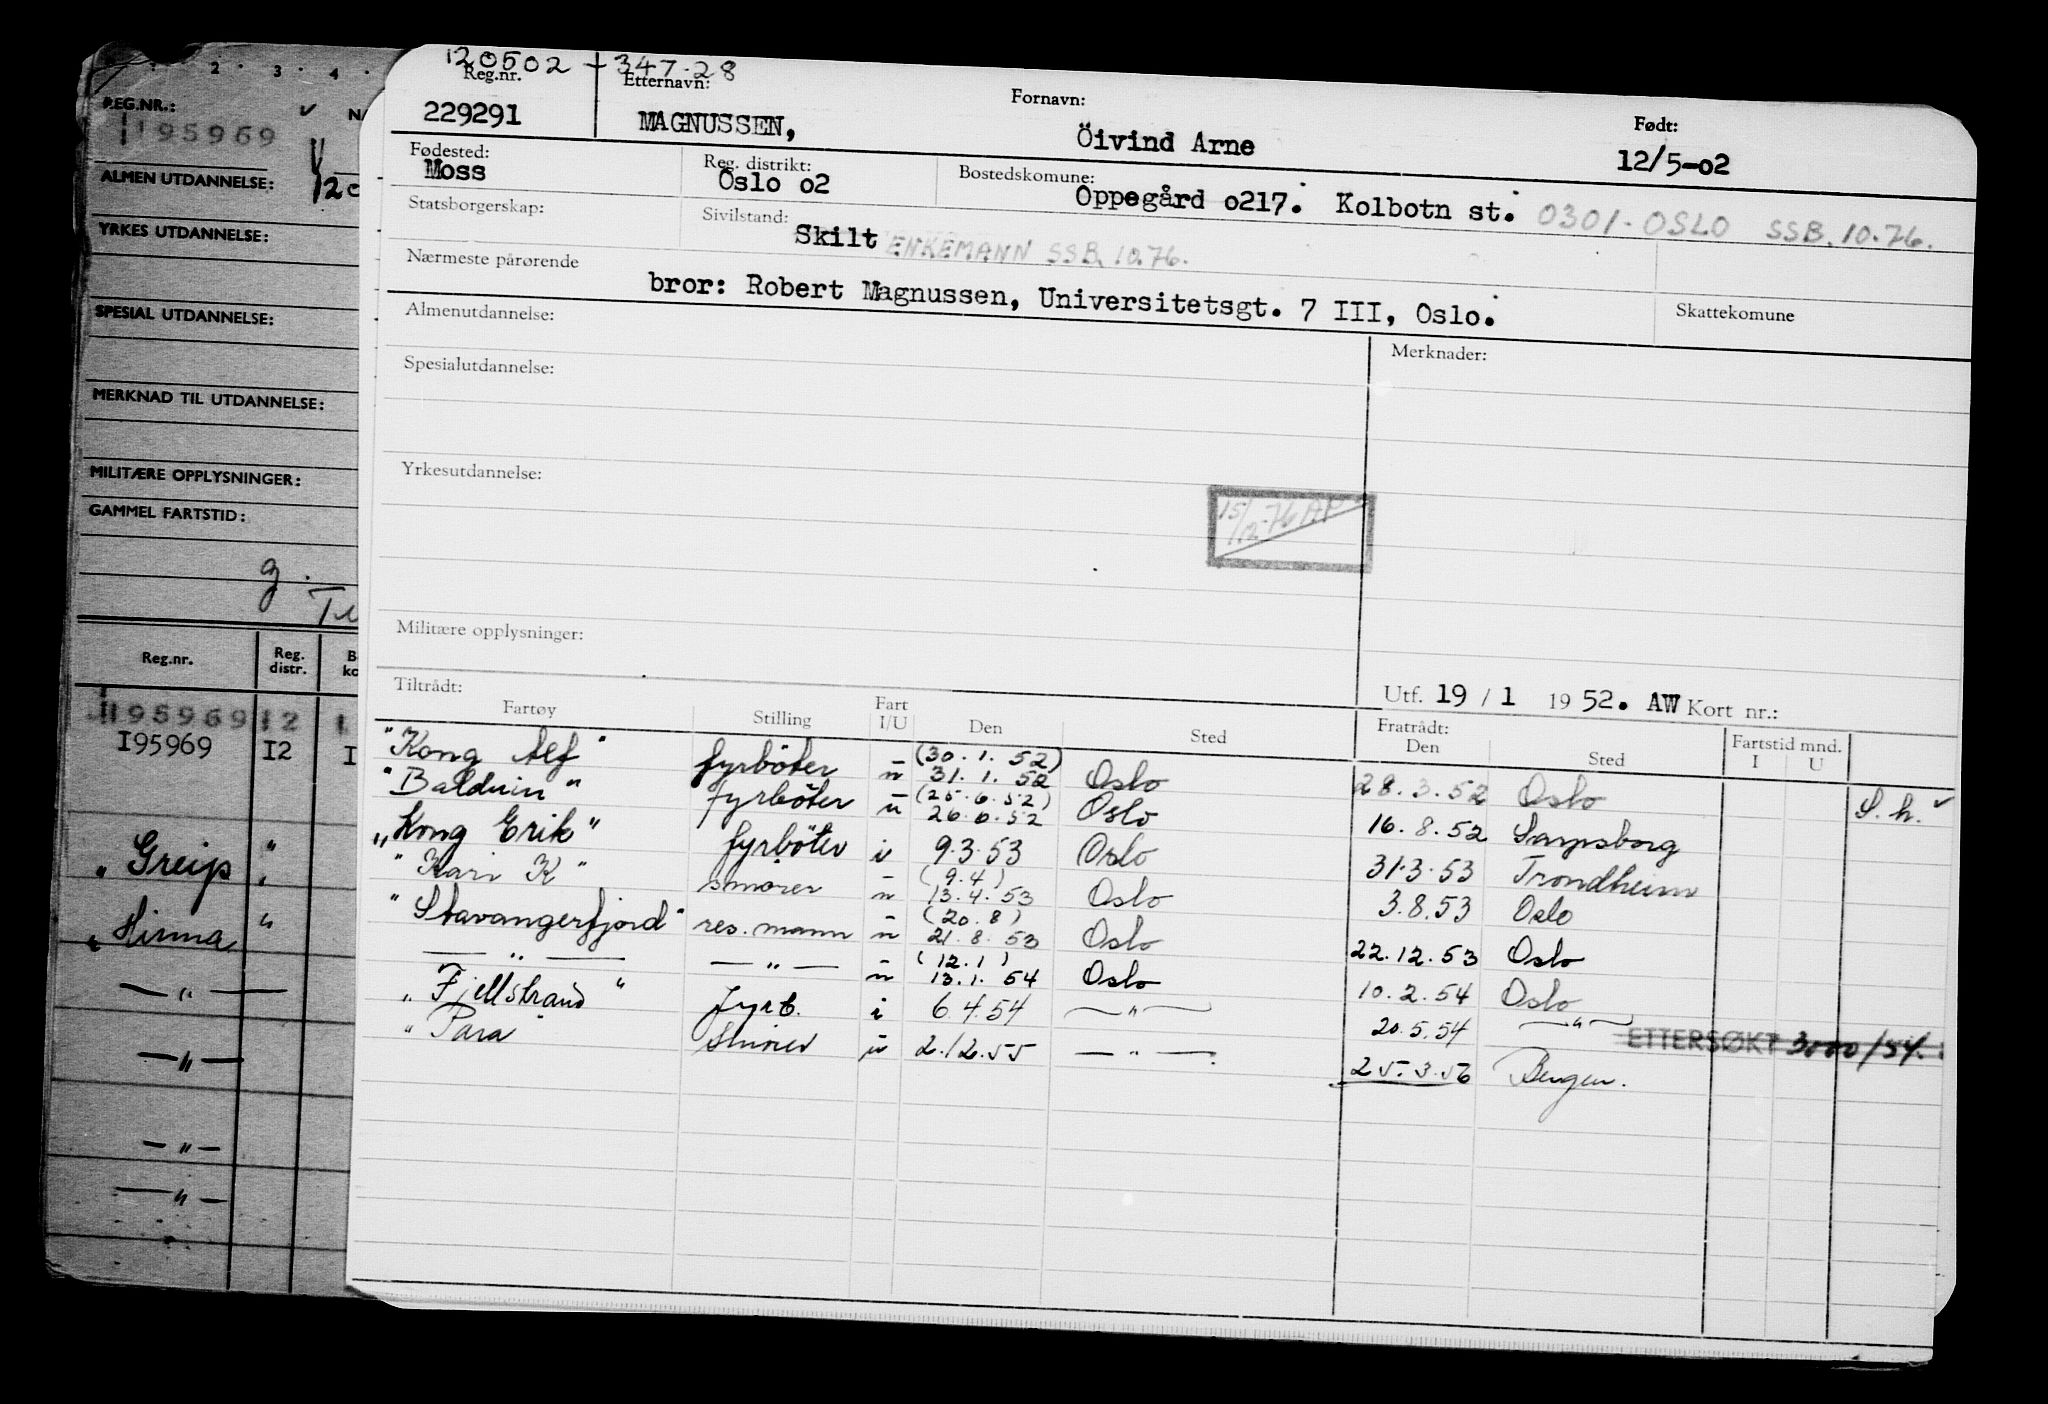 1 . 2 . 3 . 4 .
REG.NR.:
195969
ALMEN UTDANNELSE:
YRKES UTDANNELSE:
SPESIAL UTDANNELSE:
MERKNAD TIL UTDANNELSE:
MILITÆRE OPPLYSNINGER:
GAMMEL FARTSTID:
g.
Reg.nr. Reg. distr.
195969 12
I95969 I2 I
"Greip "
"Hinna "
— " —
— " —
— " —
— " —
120502 - 347.28
Reg.nr. Etternavn: Fornavn: Født:
229291 MAGNUSSEN, Öivind Arne 12/5-02
Fødested: Reg. distrikt: Bostedskomune:
Moss Oslo o2 Oppegård o217. Kolbotn st. 0301-OSLO SSB. 10.76.
Statsborgerskap: Sivilstand:
Skilt ENKEMANN SSB. 10.76.
Nærmeste pårørende
bror: Robert Magnussen, Universitetsgt. 7 III, Oslo.
Skattekomune
Almenutdannelse:
Merknader:
Spesialutdannelse:
Yrkesutdannelse:
15/12-76 AP
Militære opplysninger:
Utf. 19 / 1 19 52. AW Kort nr.:
Tiltrådt: Fratrådt:
Fartøy Stilling Fart I/U Den Sted Den Sted Fartstid mnd. I U
"Kong Alf" fyrböter u (30.1.52) 31.1.52 Oslo 28.3.52 Oslo S.h. ✓
"Balduin" fyrböter u (25.6.52) 26.6.52 Oslo 16.8.52 Sarpsborg
"Kong Erik" fyrböter i 9.3.53 Oslo 31.3.53 Trondheim
"Kari K" smører u (9.4) 13.4.53 Oslo 3.8.53 Oslo
"Stavangerfjord" res. mann u (20.8) 21.8.53 Oslo 22.12.53 Oslo
— " — — " — u (12.1) 13.1.54 Oslo 10.2.54 Oslo
"Fjellstrand" fyrb. i 6.4.54 — " — 20.5.54 — " —
ETTERSØKT 3000/54.
"Para smører u 2.12.55 — " — 25.3.56 Bergen.